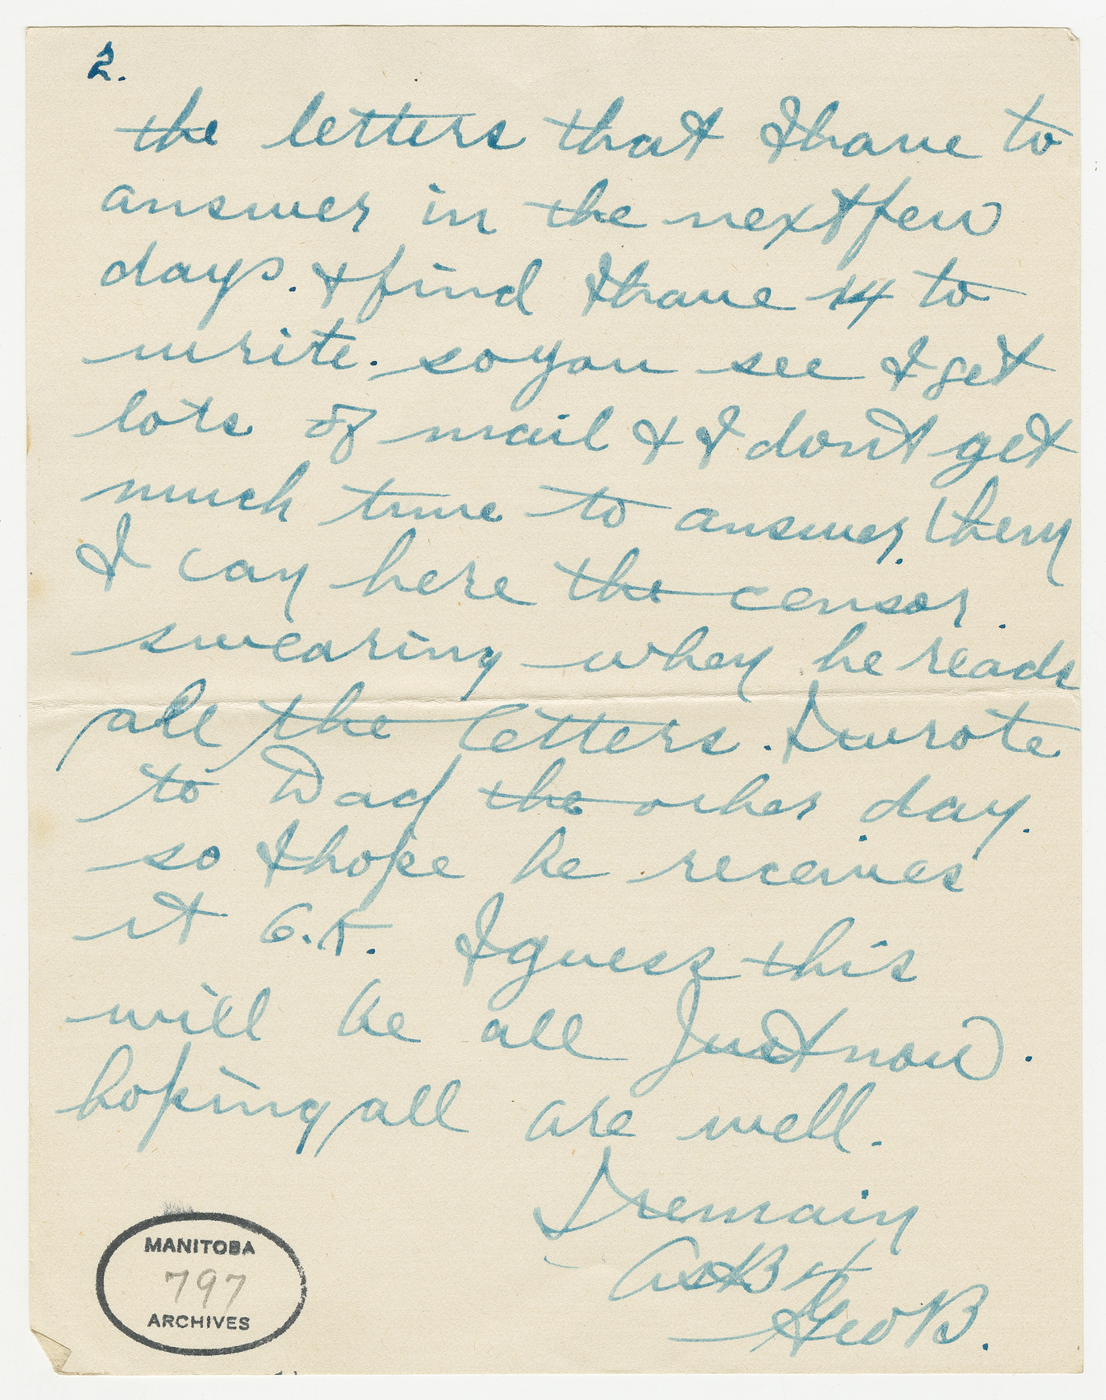 2.
the letters that I have to
answer in the next few
days. & find I have 14 to
write. so you see I get
lots of mail & I don't get
much time to answer them
I can here the censor.
swearing when he reads
all the letters. I wrote
to Dad the other day.
so I hope he receives
it O.K. I guess this
will be all Just now.
hoping all are well.
I remain
As
Geo B.
MANITOBA
797
ARCHIVES